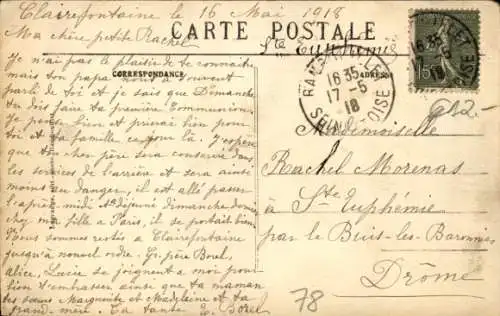 Clairefontaine le 16 Mai 1918
CARTE POSTALE
Ma chère petite Rachel
Ste Euphémie
CORRESPONDANCE
ADRESSE
Je n'ai pas le plaisir de te connaître
mais ton papa nous a souvent
parlé de toi et je sais que Dimanche
tu dois faire ta première Communion,
Je pense bien et prierai bien pour
toi et ta famille ce jour là. J'espère
que ton cher père sera conservé dans
les services de l'arrière et sera ainsi
moins au danger, il est allé passer
l'après midi et déjeuné dimanche dernier
chez ma fille à Paris, il se portait bien
Nous sommes restés à Clairefontaine
jusqu'à nouvel ordre. Gd père Borel,
Alice, Lucie se joignent à moi pour
t'embrasser ainsi que ta maman
tes sœurs Marguerite et Madeleine et ta
grand-mère. Ta tante E. Borel
Mademoiselle
Rachel Morenas
à Ste Euphémie
par le Buis-les-Baronnies
Drôme
16 35
17-5
18
OISE
15
78